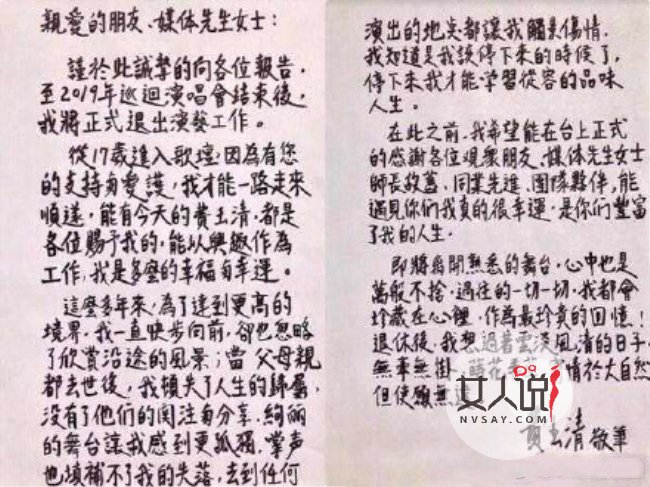 親愛的朋友、媒体先生女士：
謹於此誠摯的向各位報告，
至2019年巡迴演唱會結束後，
我將正式退出演藝工作。
從17歲進入歌壇，因為有您
的支持與愛護，我才能一路走來
順遂，能有今天的費玉清，都是
各位賜予我的，能以興趣作為
工作，我是多麼的幸福與幸運。
這麼多年來，為了達到更高的
境界，我一直快步向前，卻也忽略
了欣賞沿途的風景；當父母親
都去世後，我頓失了人生的歸屬，
沒有了他們的關注與分享，絢麗
的舞台讓我感到更孤獨，掌聲
也填補不了我的失落，去到任何
演出的地点都讓我觸景傷情。
我知道是我該停下來的時候了，
停下來我才能学習從容的品味
人生。
在此之前，我希望能在台上正式
的感谢各位观衆朋友、媒体先生女士
師長故舊、同業先進、團隊夥伴，能
遇見你們我真的很幸運，是你們豐富
了我的人生。
即將離開熟悉的舞台，心中也是
萬般不捨，過往的一切一切，我都會
珍藏在心裡，作為最珍真的回憶！
退休後，我想過著雲淡風清的日子，
無牽無掛，情於大自然
但使願無
費玉清 敬筆
女人说
NVSAY.COM